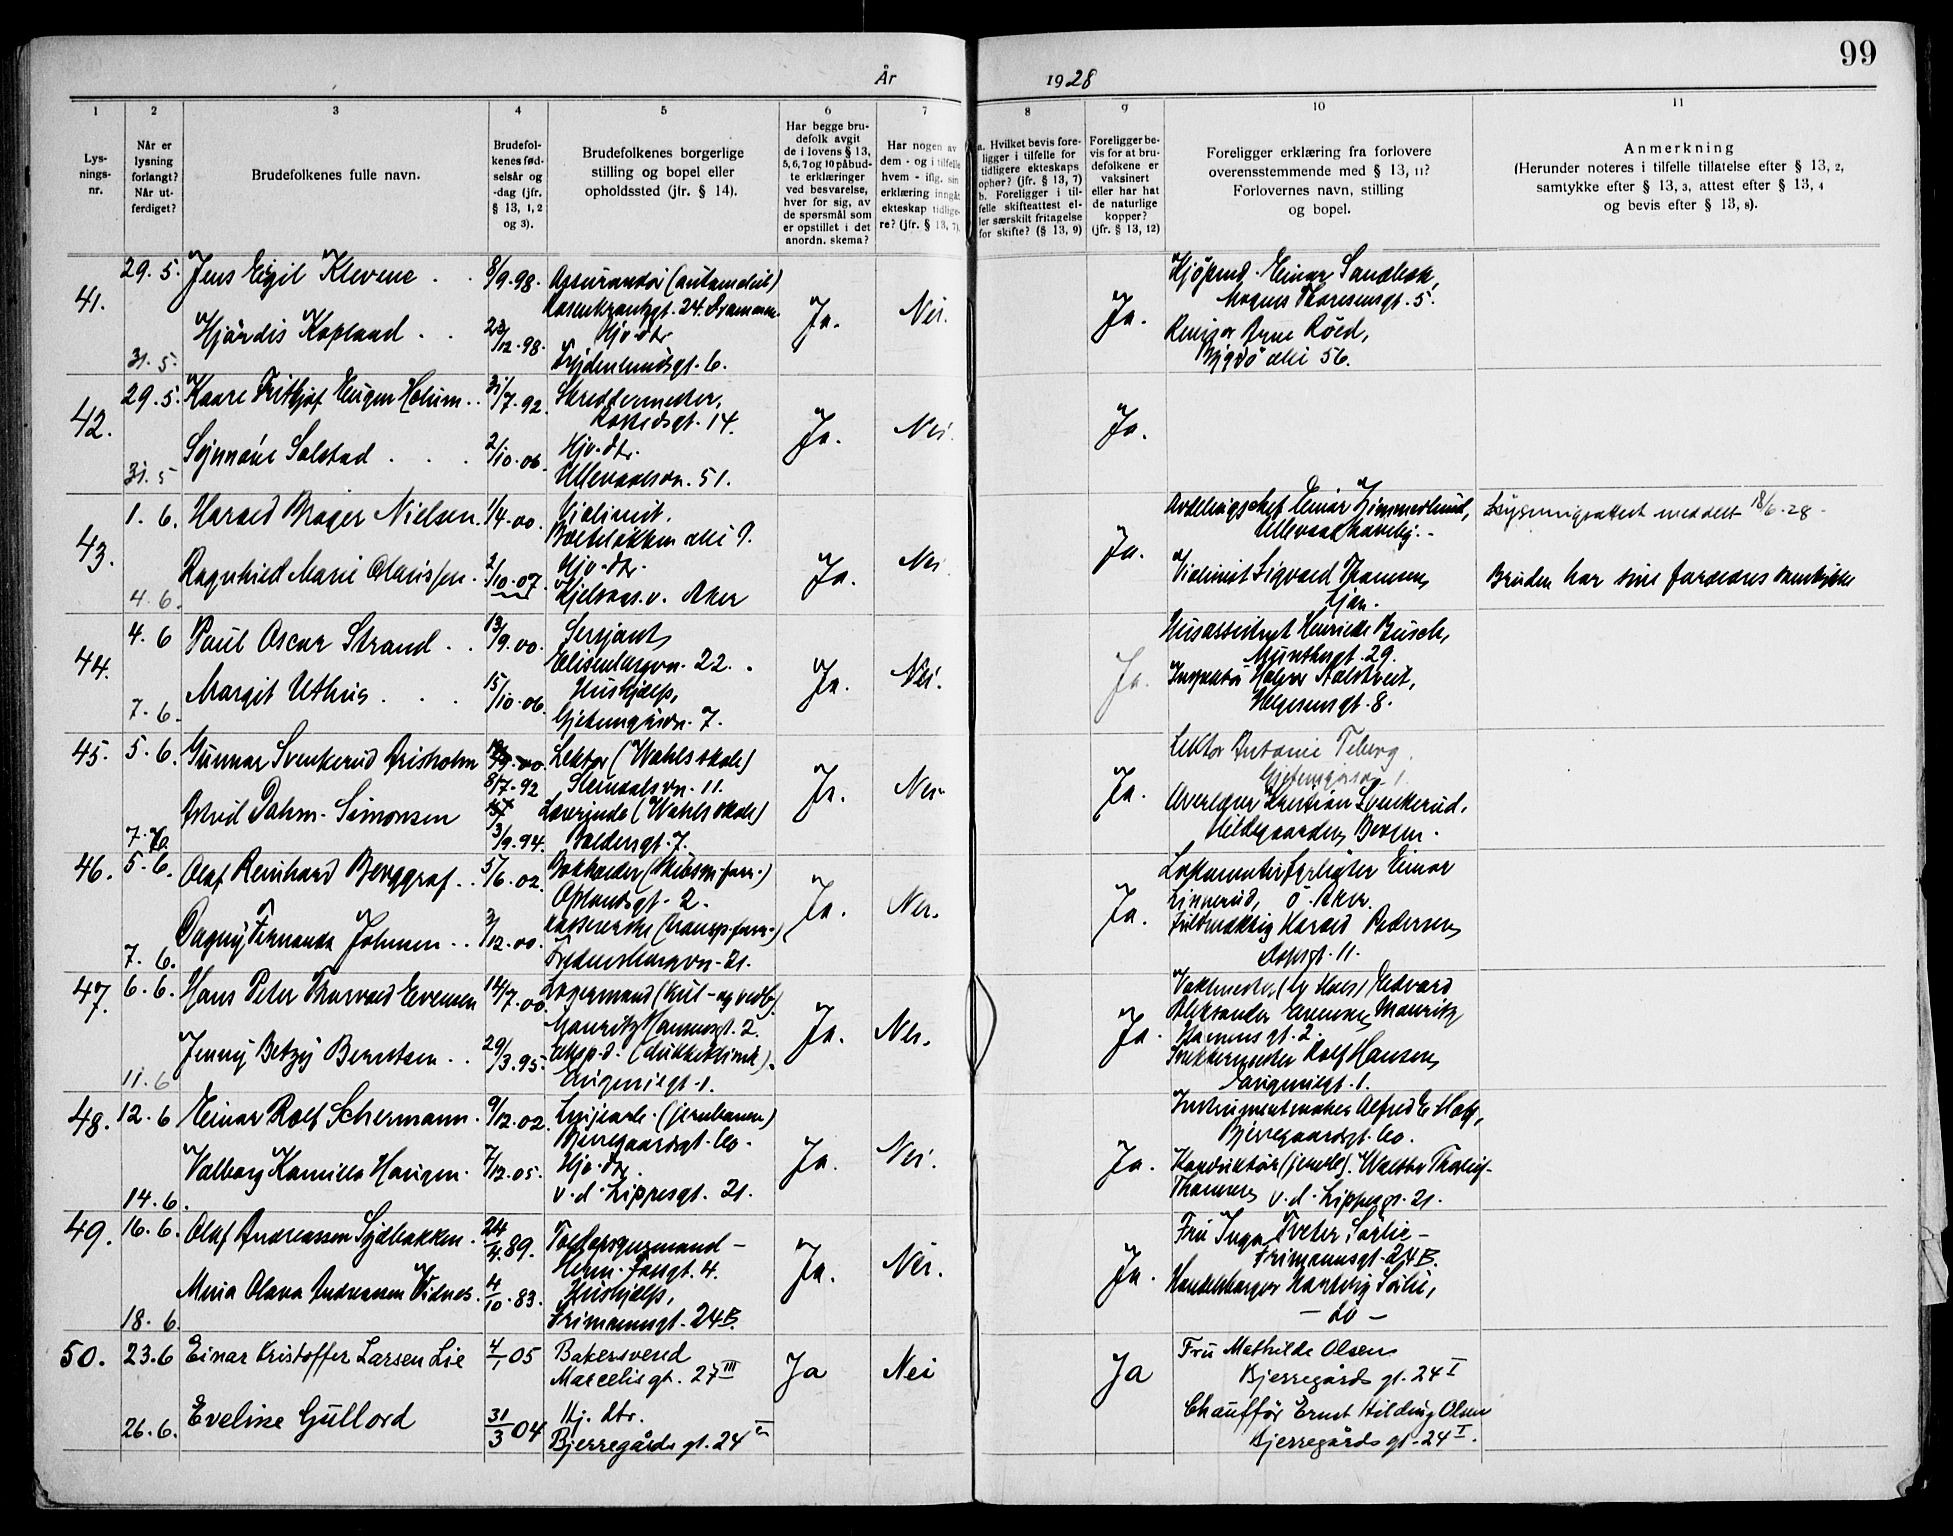 99
År 1928
1 2 3 4 5 6 7 8 9 10 11
Lys-
nings-
nr.
Når er
lysning
forlangt?
Når ut-
ferdiget?
Brudefolkenes fulle navn.
Brudefol-
kenes fød-
selsår og
-dag (jfr.
§ 13, 1, 2
og 3).
Brudefolkenes borgerlige
stilling og bopel eller
opholdssted (jfr. § 14).
Har begge bru-
defolk avgit
de i lovens § 13,
5, 6, 7 og 10 påbud-
te erklæringer
ved besvarelse,
hver for sig, av
de spørsmål som
er opstillet i det
anordn. skema?
Har nogen av
dem - og i tilfelle
hvem - iflg. sin
erklæring inngåt
ekteskap tidlige-
re? (jfr. § 13, 7).
a. Hvilket bevis fore-
ligger i tilfelle for
tidligere ekteskaps
ophør? (jfr. § 13, 7)
b. Foreligger i til-
felle skifteattest el-
ler særskilt fritagelse
for skifte? (§ 13, 9)
Foreligger be-
vis for at bru-
defolkene er
vaksinert
eller har hat
de naturlige
kopper?
(jfr. § 13, 12)
Foreligger erklæring fra forlovere
overensstemmende med § 13, 11?
Forlovernes navn, stilling
og bopel.
Anmerkning
(Herunder noteres i tilfelle tillatelse efter § 13, 2,
samtykke efter § 13, 3, attest efter § 13, 4
og bevis efter § 13, 8).
41.
29. 5.
Jens Egil Klevene
8/9. 98.
Rosenkrantzgt. 24.
Hjördis Kopland
23/12. 98.
Hjv. dtr.
31. 5.
Frydenlundsgt. 6.
Ja. Nei. Ja.
Einar Sandbek,
Magnus Thoresensgt. 5.
Revisor Arne Röed,
Bygdö alle 56.
42.
29. 5.
Kaare Frithjof Eugen Holum
31/7. 92.
Skreddermester,
gt. 14.
Synnöve Solstad
2/10. 06.
Hjv. dtr.
31. 5
Ullevaalsvn. 51.
Ja. Nei. Ja.
43.
1. 6.
Harald Brager Nielsen
1/4. 00.
Violinist.
alle 9.
Ragnhild Marie Olaussen
2/10. 07.
Hjv. dtr.
4. 6.
Kjelsaas. v. Aker
Ja. Nei Ja.
Avdelingschef Einar
Ullevaal haveby.
Violinist Sigvard Thomsen
Ljan.
Lysningsattest meddelt 18/6. 28
Bruden har sine foreldres samtykke
44.
4. 6
Paul Oscar Strand
13/9. 00.
Sersjant,
Elisenbergvn. 22.
Margit Uthus
15/10. 06.
Hushjelp,
7. 6.
Gjetemyrsvn. 7.
Ja. Nei. Ja.
Husassistent Henriette Busch,
Munthesgt. 29.
Inspektör Halvor
Helgesensgt. 8.
45.
5. 6.
Gunnar Svenkerud Grisholm
8/7. 92
Lektor (Wahls skole)
Stensalsvn. 11.
Astrid Dahm-Simonsen
3/9. 94.
Lærerinde (Wahls skole)
7. 6.
Baldersgt. 7.
Ja. Nei. Ja.
Lektor Antonie Teberg
Gjetemyrsvn. 1.
Kristian Svenkerud,
Bergen.
46.
5. 6.
Olaf Reinhard Berggraf
5/6. 02.
Bokholder
Oplandsgt. 2.
Dagny Fernanda Johnsen
3/12. 00.
7. 6.
Fredensborgvn. 21.
Ja. Nei. Ja.
Einar
Linnerud, Ö. Aker.
Harald Pedersen
gt. 11.
47.
6. 6.
Hans Peter Thorvald Evensen
14/7. 00
Lagermand (kul- og vedb.)
Mauritz Hansensgt. 2.
Jenny Betzy Berntsen
29/3. 95.
11. 6
gt. 1.
Ja. Nei. Ja.
Vaktmester Edvard
Aleksander Evensen Mauritz
Hansens gt. 2.
Rolf Hansen
gt. 1.
48.
12. 6
Einar Rolf Schermann
9/12. 02.
(jernbanen)
Bjerregaardsgt. 60.
Valborg Kamilla Haugen
7/12. 05.
Hjv. dtr.
14. 6.
v. d. Lippesgt. 21.
Ja. Nei. Ja.
Instrumentmaker Alfred E.
Bjerregaardsgt. 60.
Konduktör Walter
v. d. Lippesgt. 21.
49.
16. 6.
Olaf Andreassen Sydbakken
24/4. 89.
Toldopsynsmand
Herm. Fossgt. 4.
Olava Andreassen Vidnes
4/10. 83.
Hushjelp,
18. 6.
Frimannsgt. 24B.
Ja. Nei. Ja.
Fru Inga Tveter Sörlie
Frimannsgt. 24B.
Hartvig Sörlie,
— do —
50.
23. 6
Einar Kristoffer Larsen Lie
4/1 05
Bakersvend
Marcelisgt. 27 III
Eveline Gullord
31/3 04
Hj. dtr.
26. 6.
Bjerregårds gt. 24
Ja Nei Ja
Fru Mathilde Olsen
Bjerregårds gt. 24 I
Chauffør Ernst Hilding Olsen
Bjerregårds gt. 24 I.